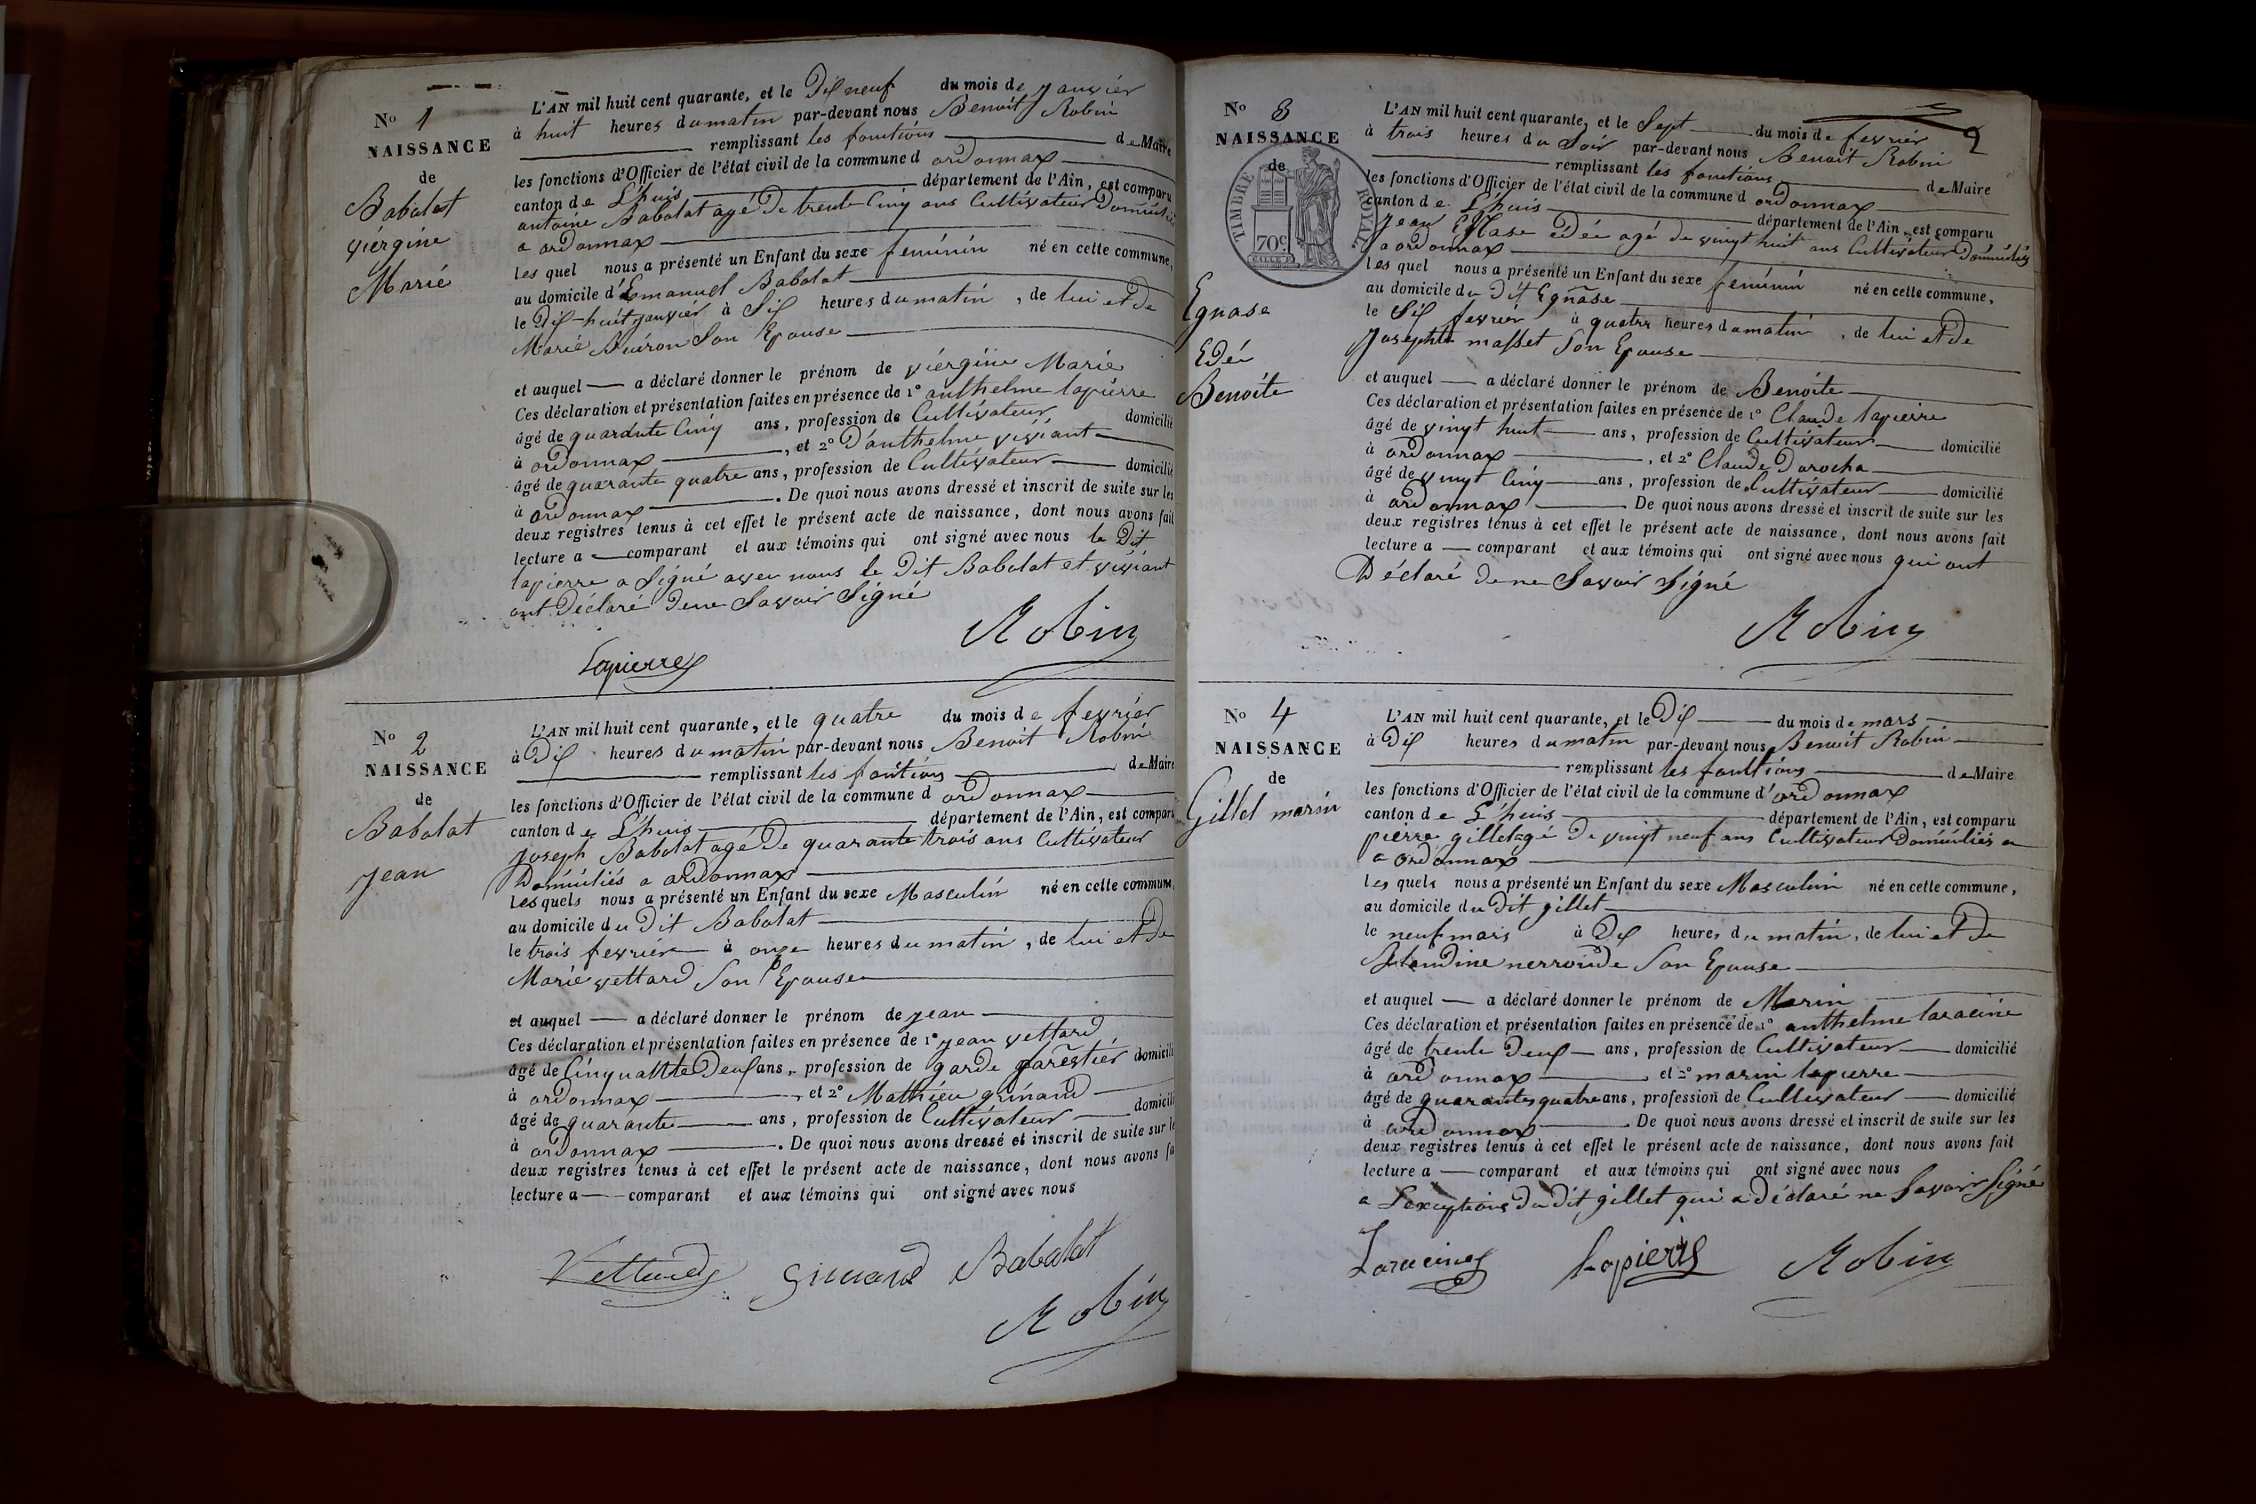 No 1
NAISSANCE
de
Babolat
viérgine
Marie
L'AN mil huit cent quarante, et le Dixneuf du mois de Janvier
à huit heures du matin par-devant nous Benoit Robin
remplissant les fonctions de Maire
les fonctions d'Officier de l'état civil de la commune d ordonnax
canton de L'huis département de l'Ain, est comparu
antoine Babolat agé De trente Cinq ans Cultivateur Domicilié
a ordonnax
les quel nous a présenté un Enfant du sexe feminin né en cette commune,
au domicile d'Emanuel Babolat
le Dix-huit janvier à Six heures du matin, de lui et de
Marie Buiron Son Epouse
et auquel a déclaré donner le prénom de viérgine Marie
Ces déclaration et présentation faites en présence de 1o anthelme lapierre
âgé de quarante Cinq ans, profession de Cultivateur domicilié
à ordonnax, et 2o D'anthelme viviant
âgé de quarante quatre ans, profession de Cultivateur domicilié
à ordonnax. De quoi nous avons dressé et inscrit de suite sur les
deux registres tenus à cet effet le présent acte de naissance, dont nous avons fait
lecture a comparant et aux témoins qui ont signé avec nous le Dit
lapierre a Signé avec nous le Dit Babolat et viviant
ont Déclaré Dene Savoir Signé
Robin
Lapierre
No 2
NAISSANCE
de
Babolat
Jean
L'AN mil huit cent quarante, et le quatre du mois de fevrier
à Dix heures du matin par-devant nous Benoit Robin
remplissant les fontions de Maire
les fonctions d'Officier de l'état civil de la commune d ordonnax
canton de L'huis département de l'Ain, est comparu
Joseph Babolat agé De quarante trois ans Cultivateur
Domiciliés a ordonnax
Les quels nous a présenté un Enfant du sexe Masculin né en cette commune,
au domicile du Dit Babolat
le trois fevrier à onze heures du matin, de lui et De
Marie vettard Son Epouse
et auquel a déclaré donner le prénom de Jean
Ces déclaration et présentation faites en présence de 1o Jean vettard
âgé de Cinquante Deux ans, profession de garde forestier domicilié
à ordonnax, et 2o Mathieu grinand
âgé de quarante ans, profession de Cultivateur domicilié
à ordonnax. De quoi nous avons dressé et inscrit de suite sur le
deux registres tenus à cet effet le présent acte de naissance, dont nous avons fa
lecture a comparant et aux témoins qui ont signé avec nous
Vettard Babolat
Robin
No 3
NAISSANCE
de
TIMBRE ROYAL
70c
Egnase
Edéé
Benoite
L'AN mil huit cent quarante, et le Sept du mois de fevrier
2
à trois heures du Soir par-devant nous Benoit Robin
remplissant les fonctions de Maire
les fonctions d'Officier de l'état civil de la commune d ordonnax
canton de L'huis département de l'Ain, est comparu
Jean Egnase edée agé de vingt huit ans Cultivateur Domiciliés
a ordonnax
les quel nous a présenté un Enfant du sexe feminin né en cette commune,
au domicile du Dit Egnase
le Six fevrier à quatre heures du matin, de lui et De
Josephte masset Son Epouse
et auquel a déclaré donner le prénom de Benoite
Ces déclaration et présentation faites en présence de 1o Claude lapierre
âgé de vingt huit ans, profession de Cultivateur domicilié
à ordonnax, et 2o Claude Durocha
âgé de vingt Cinq ans, profession de Cultivateur domicilié
à ordonnax De quoi nous avons dressé et inscrit de suite sur les
deux registres tenus à cet effet le présent acte de naissance, dont nous avons fait
lecture a comparant et aux témoins qui ont signé avec nous qui ont
Déclaré de ne Savoir Signé
Robin
No 4
NAISSANCE
de
Gillet marin
L'AN mil huit cent quarante, et le Dix du mois de mars
à Dix heures du matin par-devant nous Benoit Robin
remplissant les fonctions de Maire
les fonctions d'Officier de l'état civil de la commune d'ordonnax
canton de L'huis département de l'Ain, est comparu
pierre gillet agé De vingt neuf ans Cultivateur Domiciliés a
a ordonnax
les quels nous a présenté un Enfant du sexe Masculin né en cette commune,
au domicile du Dit gillet
le neuf mars à Dix heures du matin, de lui et De
Blandine Son Epouse
et auquel a déclaré donner le prénom de Marin
Ces déclaration et présentation faites en présence de 1o anthelme laracine
âgé de trente Deux ans, profession de Cultivateur domicilié
à ordonnax, et 2o marin lapierre
âgé de quarantes quatre ans, profession de Cultivateur domicilié
à ordonnax De quoi nous avons dressé et inscrit de suite sur les
deux registres tenus à cet effet le présent acte de naissance, dont nous avons fait
lecture a comparant et aux témoins qui ont signé avec nous
a L'exceptions Du Dit gillet qui a Déclaré ne Savoir Signé
Laracine Lapierre Robin